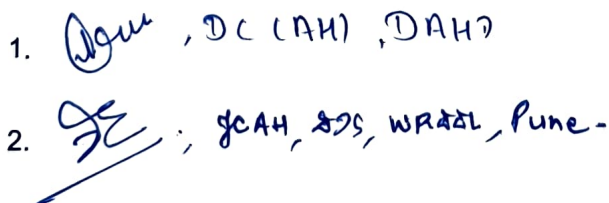 1. , DC (AH), DAHD
2. , JCAH, DIS, WRDDL, Pune-